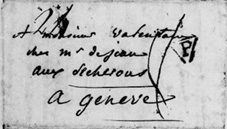 A monsieur Valentin
chez mr dejean
aux secherons
a geneve
P